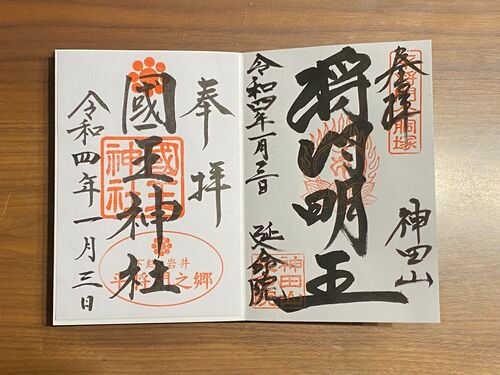 奉拝
将門胴塚
神田山
将門明王
令和四年一月三日
延命院
神田山
奉拝
國王神社
國王神社
岩井
平将門之郷
令和四年一月三日